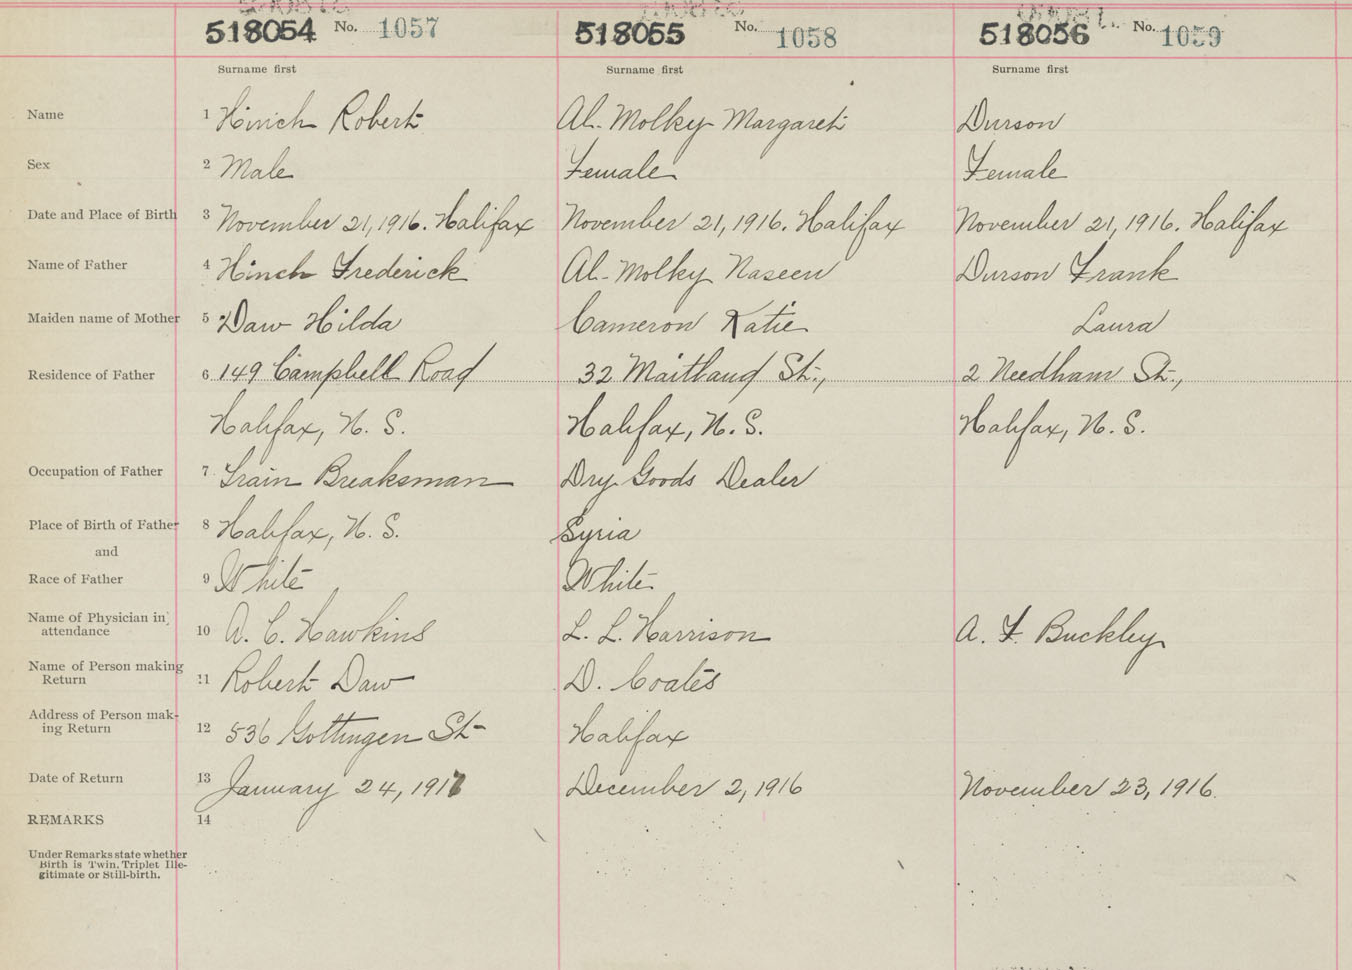 518054 No. 1057 518055 No. 1058 518056 No. 1059
Surname first Surname first Surname first
Name 1 Hinch Robert Al-Molky Margaret Durson
Sex 2 Male Female Female
Date and Place of Birth 3 November 21, 1916. Halifax November 21, 1916. Halifax November 21, 1916. Halifax
Name of Father 4 Hinch Frederick Al-Molky Naseen Durson Frank
Maiden name of Mother 5 Daw Hilda Cameron Katie Laura
Residence of Father 6 149 Campbell Road 32 Maitland St., 2 Needham St.,
Halifax, N. S. Halifax, N. S. Halifax, N. S.
Occupation of Father 7 Train Breaksman Dry Goods Dealer
Place of Birth of Father 8 Halifax, N. S. Syria
and
Race of Father 9 White White
Name of Physician in
attendance 10 A. C. Hawkins L. L. Harrison A. F. Buckley
Name of Person making
Return 11 Robert Daw D. Coates
Address of Person mak-
ing Return 12 536 Gottingen St Halifax
Date of Return 13 January 24, 1917 December 2, 1916 November 23, 1916.
REMARKS 14
Under Remarks state whether
Birth is Twin, Triplet Ille-
gitimate or Still-birth.